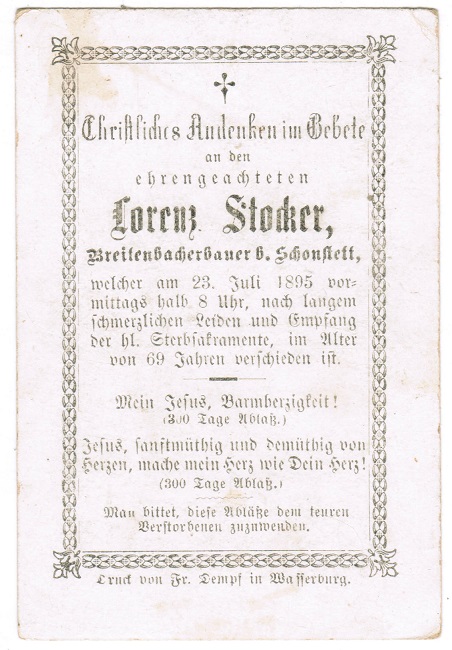 Christliches Andenken im Gebete
an den
ehrengeachteten
Lorenz Stocker,
Breitenbacherbauer b. Schonstett,
welcher am 23. Juli 1895 vor-
mittags halb 8 Uhr, nach langem
schmerzlichen Leiden und Empfang
der hl. Sterbsakramente, im Alter
von 69 Jahren verschieden ist.
Mein Jesus, Barmherzigkeit!
(300 Tage Ablaß.)
Jesus, sanftmüthig und demüthig von
Herzen, mache mein Herz wie Dein Herz!
(300 Tage Ablaß.)
Man bittet, diese Abläße dem teuren
Verstorbenen zuzuwenden.
Druck von Fr. Dempf in Wasserburg.